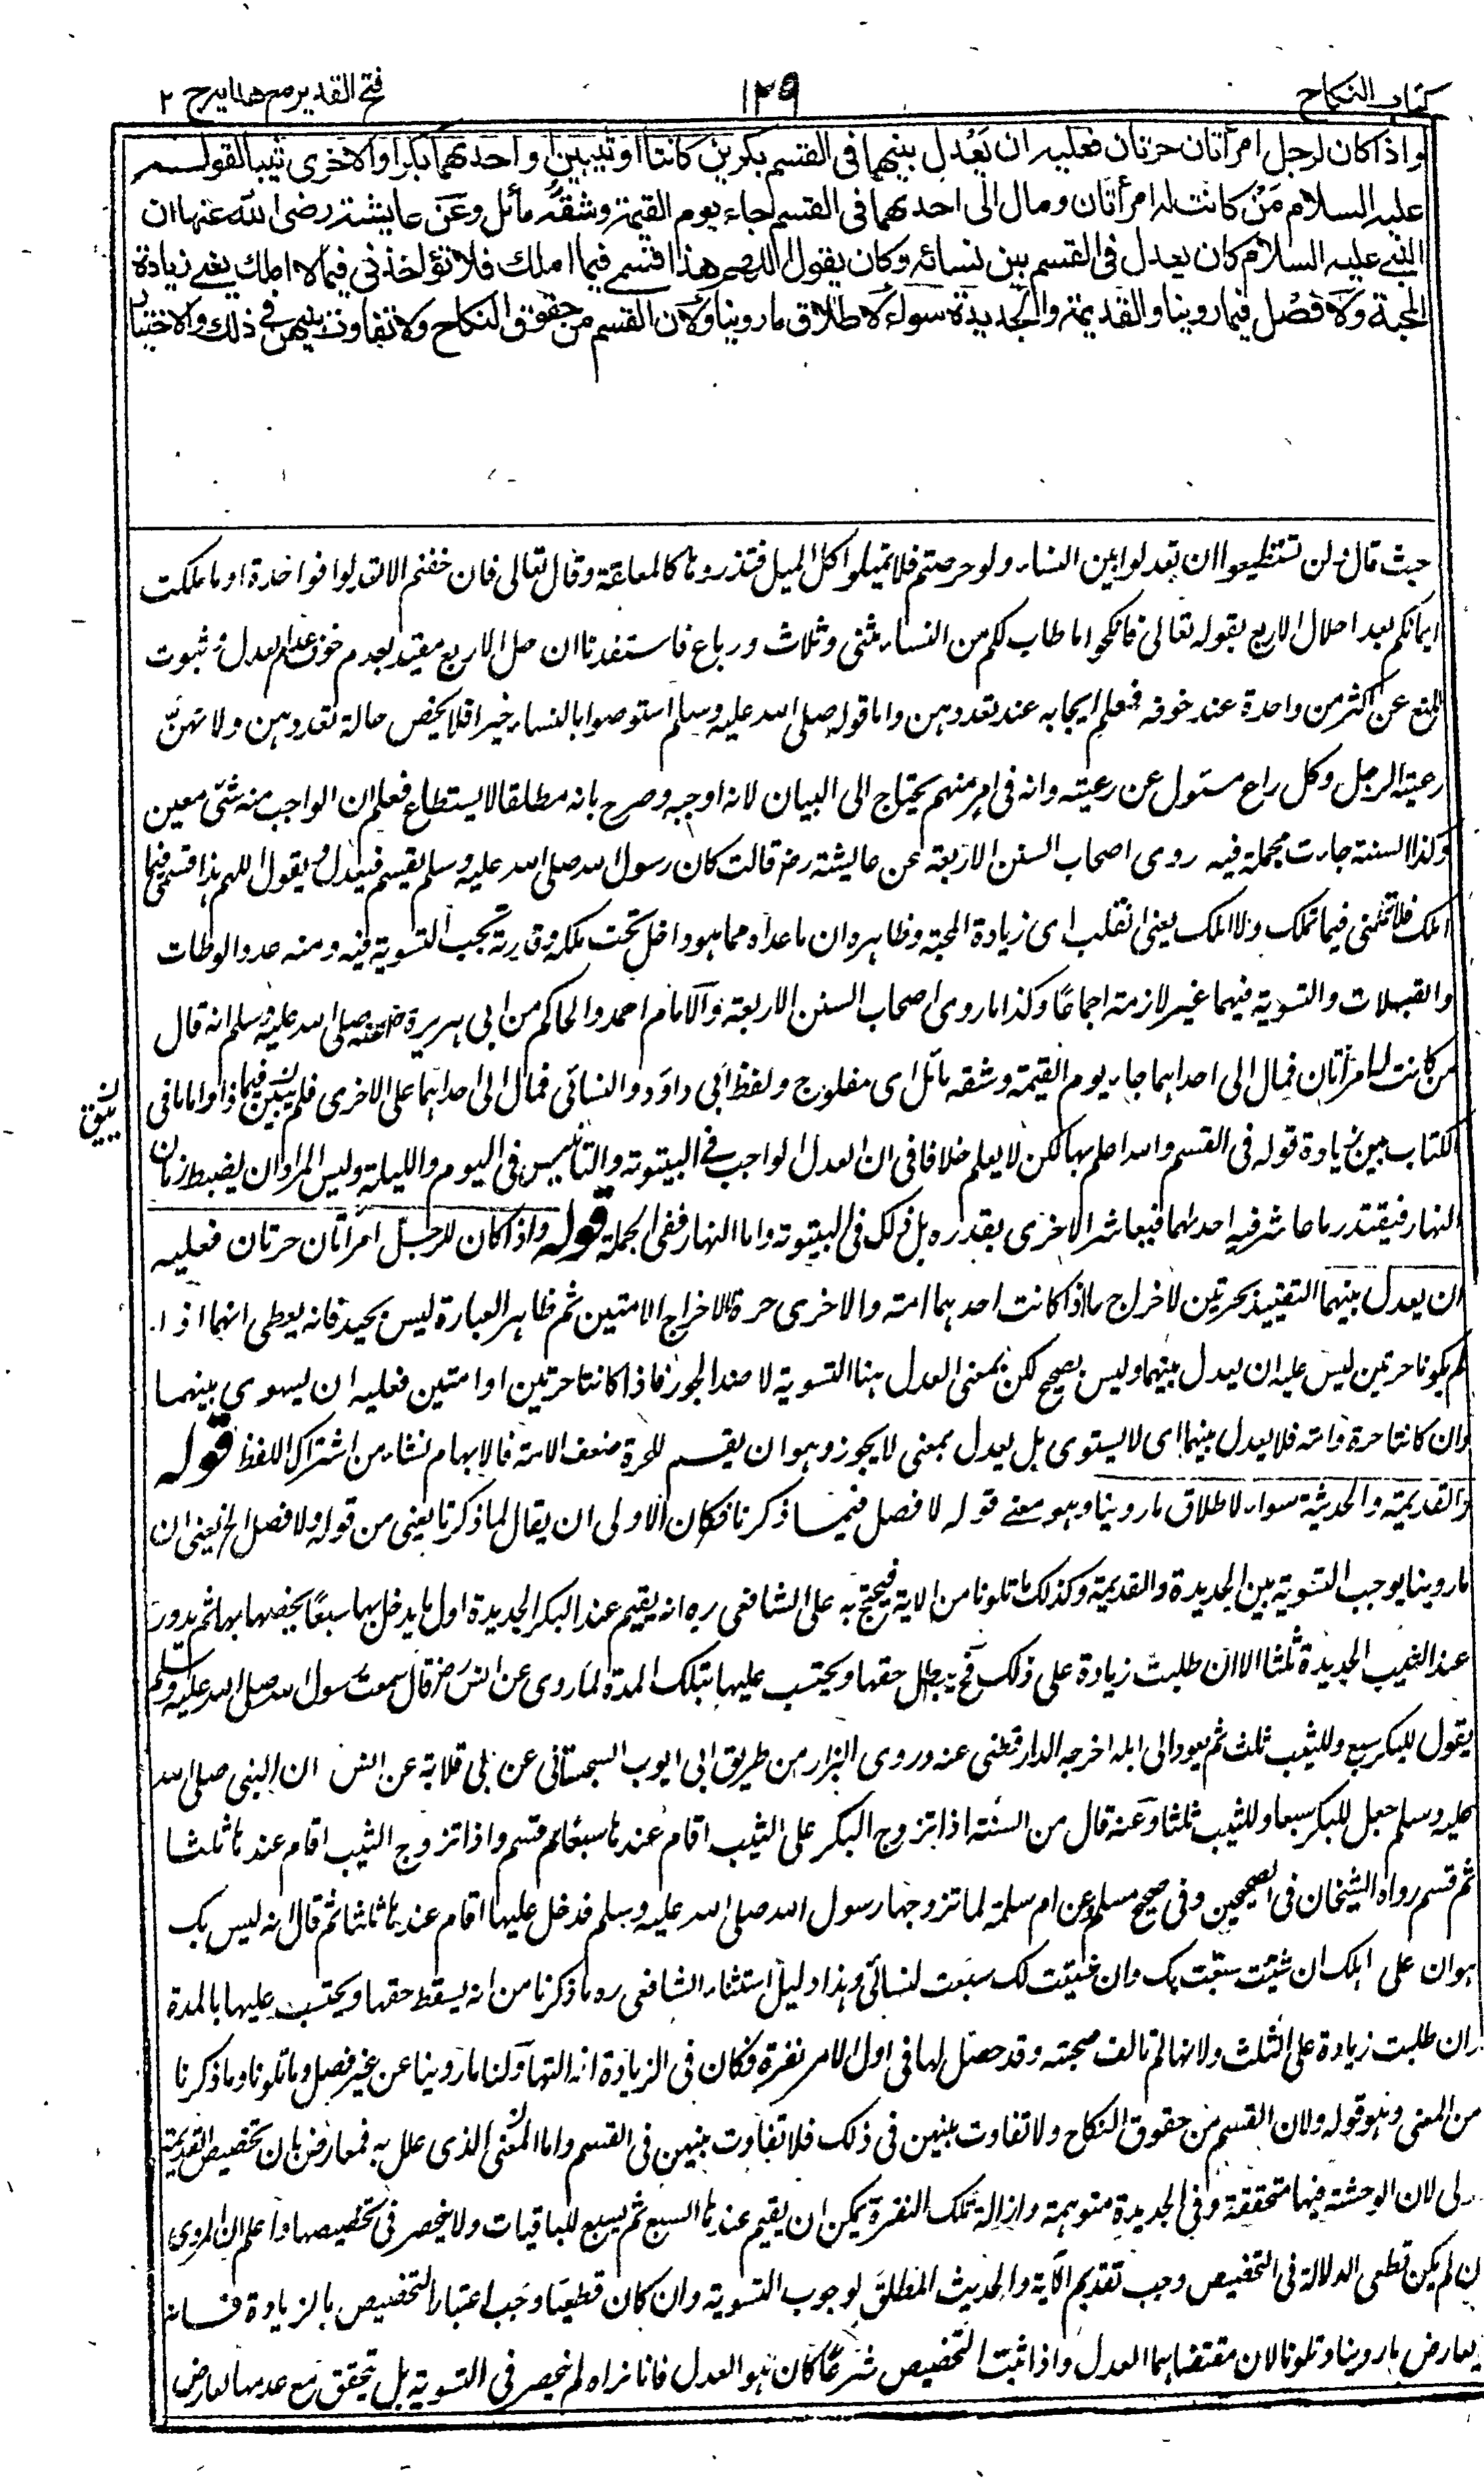 كتاب النكاح
١٢٩
فتح القدير مع هدايه ج ٢
واذا كان لرجل امرأتان حرتان فعليه ان يعدل بينهما في القسم بكرين كانتا او ثيبين او احدهما بكرا والاخرى ثيبا لقوله
عليه السلام من كانت له امرأتان ومال الى احدهما في القسم جاء يوم القيمة وشقه مائل وعن عايشة رضى الله عنها ان
النبي عليه السلام كان يعدل في القسم بين نسائه وكان يقول اللهم هذا قسمي فيما املك فلا تؤاخذني فيما لا املك يعني زيادة
المحبة ولا فصل فيما روينا والقديمة والجديدة سواء لاطلاق ما روينا ولان القسم من حقوق النكاح ولا تفاوت بينهن في ذلك والاختيار
حيث قال ولن تستطيعوا ان تعدلوا بين النساء ولو حرصتم فلا تميلوا كل الميل فتذروها كالمعلقة وقال تعالى فان خفتم الا تعدلوا فواحدة او ما ملكت
ايمانكم بعد احلال الاربع بقوله تعالى فانكحوا ما طاب لكم من النساء مثنى وثلاث ورباع فاستفدنا ان حل الاربع مقيد بعدم خوف عدم العدل وثبوت
المنع عن اكثر من واحدة عند خوفه فعلم ايجابه عند تعددهن واما قوله صلى الله عليه وسلم استوصوا بالنساء خيرا فلا يخص حالة تعددهن ولانهن
رعية الرجل وكل راع مسئول عن رعيته وانه في امر مبهم يحتاج الى البيان لانه اوجبه وصرح بانه مطلقا لا يستطاع فعلم ان الواجب منه شئ معين
وكذا السنة جاءت مجملة فيه روى اصحاب السنن الاربعة عن عايشة رض قالت كان رسول الله صلى الله عليه وسلم يقسم فيعدل ويقول اللهم هذا قسمي فيما
املك فلا تلمني فيما تملك ولا املك يعني القلب اى زيادة المحبة وظاهره ان ما عداه مما هو داخل تحت ملكه وقدرته تجب التسوية فيه ومنه عدد الوطات
والقبلات والتسوية فيهما غير لازمة اجماعا وكذا ما روى اصحاب السنن الاربعة والامام احمد والحاكم من ابي هريرة رض عنه صلى الله عليه وسلم انه قال
من كانت له امرأتان فمال الى احداهما جاء يوم القيمة وشقه مائل اى مفلوج ولفظ ابي داود والنسائي فمال الى احداهما على الاخرى فلم يبين فيما ذا واما ما في
يبين
الكتاب من زيادة قوله في القسم والله اعلم بها لكن لا يعلم خلافا في ان العدل الواجب في البيتوتة والتأنيس في اليوم والليلة وليس المراد ان يضبط زمان
النهار فبقدر ما عاشر فيه احدهما فيعاشر الاخرى بقدره بل ذلك في البيتوتة واما النهار ففي الجملة قوله واذا كان للرجل امرأتان حرتان فعليه
ان يعدل بينهما التقييد بحرتين لاخراج ما اذا كانت احدهما امة والاخرى حرة لا لاخراج الامتين ثم ظاهر العبارة ليس بجيد فانه يعطى انهما اذا
لم يكونا حرتين ليس عليه ان يعدل بينهما وليس بصحيح لكن بمعنى العدل هنا التسوية لا ضد الجور فاذا كانتا حرتين او امتين فعليه ان يسوي بينهما
وان كانتا حرة وامة فلا يعدل بينهما اى لا يسوى بل يعدل بمعنى لا يجوز وهو ان يقسم للحرة ضعف الامة فالابهام نشاء من اشتراك اللفظ قوله
والقديمة والحديثة سواء لاطلاق ما روينا وهو معنى قوله لا فصل فيما ذكرنا فكان الاولى ان يقال لما ذكرنا يعني من قوله ولا فصل الخ يعني ان
ما روينا يوجب التسوية بين الجديدة والقديمة وكذلك ما تلونا من الاية فيحتج به على الشافعي ره انه يقيم عند البكر الجديدة اول ما يدخل بها سبعا يخصها بها ثم يدور
عند الثيب الجديدة ثلثا الا ان طلبت زيادة على ذلك فح يبطل حقها ويحتسب عليها بتلك المدة لما روى عن انس رض قال سمعت رسول الله صلى الله عليه وسلم
يقول للبكر سبع وللثيب ثلث ثم يعود الى اهله اخرجه الدارقطني عنه وروى البزار من طريق ابي ايوب السجستاني عن ابي قلابة عن انس ان النبي صلى الله
عليه وسلم جعل للبكر سبعا وللثيب ثلثا وعنه قال من السنة اذا تزوج البكر على الثيب اقام عندها سبعا ثم قسم واذا تزوج الثيب اقام عندها ثلثا
ثم قسم رواه الشيخان في الصحيحين وفي صحيح مسلم عن ام سلمة لما تزوجها رسول الله صلى الله عليه وسلم فدخل عليها اقام عندها ثلثا ثم قال انه ليس بك
هوان على اهلك ان شئت سبعت لك وان سبعت لك سبعت لنسائي وهذا دليل استثناء الشافعي ره ما ذكرنا من انه يسقط حقها ويحتسب عليها بالمدة
ان طلبت زيادة على الثلث ولانها لم تالف صحبته وقد حصل لها في اول الامر نفرة فكان في الزيادة ازالتها ولنا ما روينا عن غير فصل وما تلونا وما ذكرنا
من المعنى وهو قوله ولان القسم من حقوق النكاح ولا تفاوت بينهن في ذلك فلا تفاوت بينهن في القسم واما المعنى الذى علل به فمعارض بان تخصيص القديمة
اولى لان الوحشة فيها متحققة وفي الجديدة متوهمة وازالة تلك النفرة يمكن ان يقيم عندها السبع ثم يسبع للباقيات ولا ينحصر في تخصيصها واعلم ان المروى
ان لم يكن قطعى الدلالة في التخصيص وجب تقديم الآية والحديث المطلق لوجوب التسوية وان كان قطعيا وجب اعتبار التخصيص بالزيادة فانه
يعارض ما روينا وتلونا لان مقتضاهما العدل واذا ثبت التخصيص شرعا كان هو العدل فانا نراه لم ينحصر في التسوية بل يتحقق مع عدمها لعارض